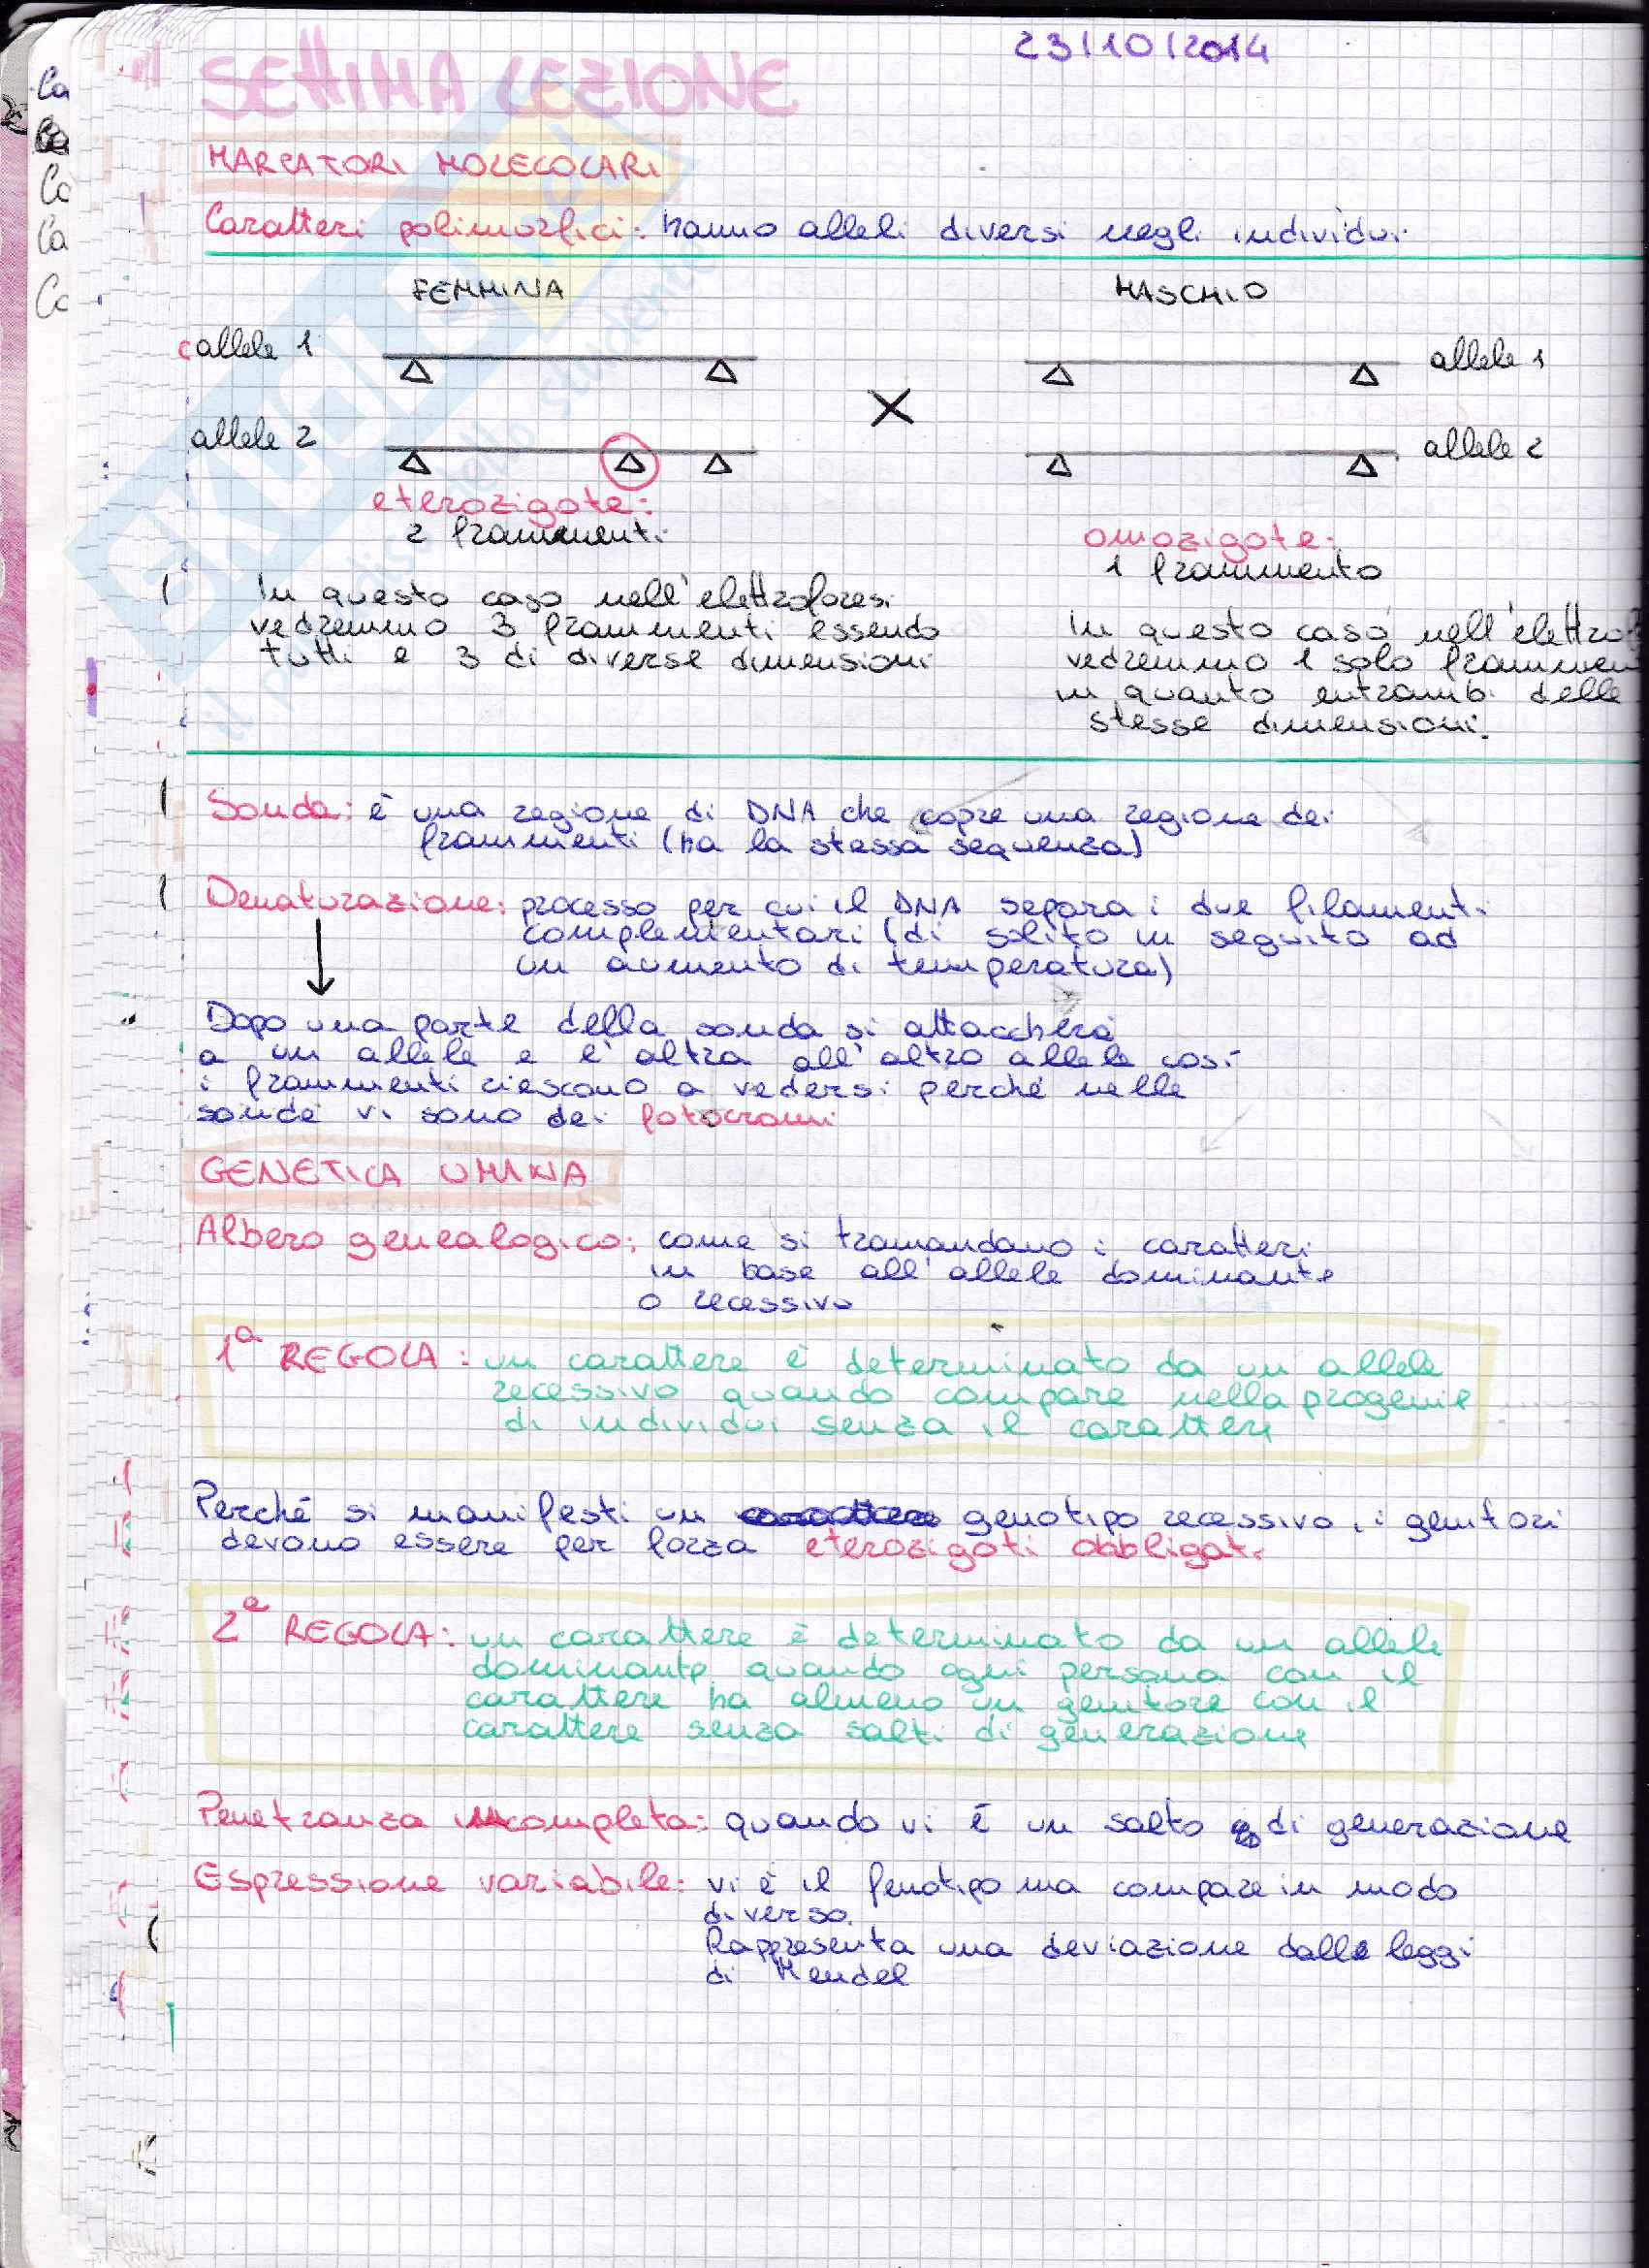 23/10/2014
SETTIMA LEZIONE
MARCATORI MOLECOLARI
Caratteri polimorfici: hanno alleli diversi negli individui.
FEMMINA MASCHIO
allele 1 allele 1
X
allele 2 allele 2
eterozigote:
2 frammenti
omozigote:
1 frammento
In questo caso nell'elettroforesi
vedremmo 3 frammenti essendo
tutti e 3 di diverse dimensioni
In questo caso nell'elettrof
vedremmo 1 solo frammen
in quanto entrambi delle
stesse dimensioni.
Sonda: è una regione di DNA che copre una regione dei
frammenti (ha la stessa sequenza)
Denaturazione: processo per cui il DNA separa i due filamenti
complementari (di solito in seguito ad
un aumento di temperatura)
Dopo una parte della sonda si attaccherà
a un allele e l'altra all'altro allele così
i frammenti riescono a vedersi perché nelle
sonde vi sono dei fotocromi
GENETICA UMANA
Albero genealogico: come si tramandano i caratteri
in base all'allele dominante
o recessivo
1ª REGOLA: un carattere è determinato da un allele
recessivo quando compare nella progenie
di individui senza il carattere
Perché si manifesti un genotipo recessivo, i genitori
devono essere per forza eterozigoti obbligati
2ª REGOLA: un carattere è determinato da un allele
dominante quando ogni persona con il
carattere ha almeno un genitore con il
carattere senza salti di generazione
Penetranza incompleta: quando vi è un salto di generazione
Espressione variabile: vi è il fenotipo ma compare in modo
diverso.
Rappresenta una deviazione dalle leggi
di Mendel